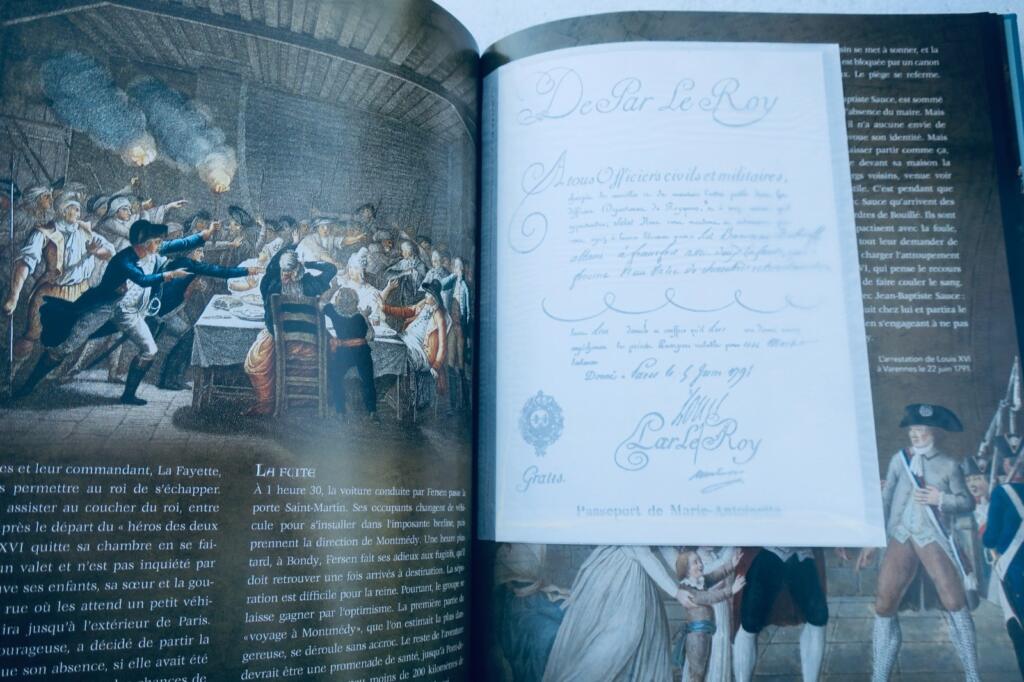 es et leur commandant, La Fayette,
s permettre au roi de s'échapper.
assister au coucher du roi, entre
près le départ du « héros des deux
XVI quitte sa chambre en se fai-
un valet et n'est pas inquiété par
uve ses enfants, sa sœur et la gou-
rue où les attend un petit véhi-
ira jusqu'à l'extérieur de Paris.
ourageuse, a décidé de partir la
ue son absence, si elle avait été
chances de
LA FUITE
À 1 heure 30, la voiture conduite par Fersen passe la
porte Saint-Martin. Ses occupants changent de véhi-
cule pour s'installer dans l'imposante berline, puis
prennent la direction de Montmédy. Une heure plus
tard, à Bondy, Fersen fait ses adieux aux fugitifs, qu'il
doit retrouver une fois arrivés à destination. La sépa-
ration est difficile pour la reine. Pourtant, le groupe se
laisse gagner par l'optimisme. La première partie du
« voyage à Montmédy », que l'on estimait la plus dan-
gereuse, se déroule sans accroc. Le reste de l'aventure
devrait être une promenade de santé, jusqu'à Pont-de-
moins de 200 kilomètres de
De Par Le Roy
A tous Officiers civils et militaires,
Donné à Paris le 5 Juin 1791
Louis
Par Le Roy
Gratis.
Passeport de Marie-Antoinette
sin se met à sonner, et la
est bloquée par un canon
x. Le piège se referme.
ptiste Sauce, est sommé
l'absence du maire. Mais
il n'a aucune envie de
voue son identité. Mais
aisser partir comme ça,
e devant sa maison la
rgs voisins, venue voir
tile. C'est pendant que
c Sauce qu'arrivent des
rdres de Bouillé. Ils sont
pactisent avec la foule,
tout leur demander de
charger l'attroupement
VI, qui pense le recours
de faire couler le sang.
ec Jean-Baptiste Sauce :
uit chez lui et partira le
en s'engageant à ne pas
L'arrestation de Louis XVI
à Varennes le 22 juin 1791.